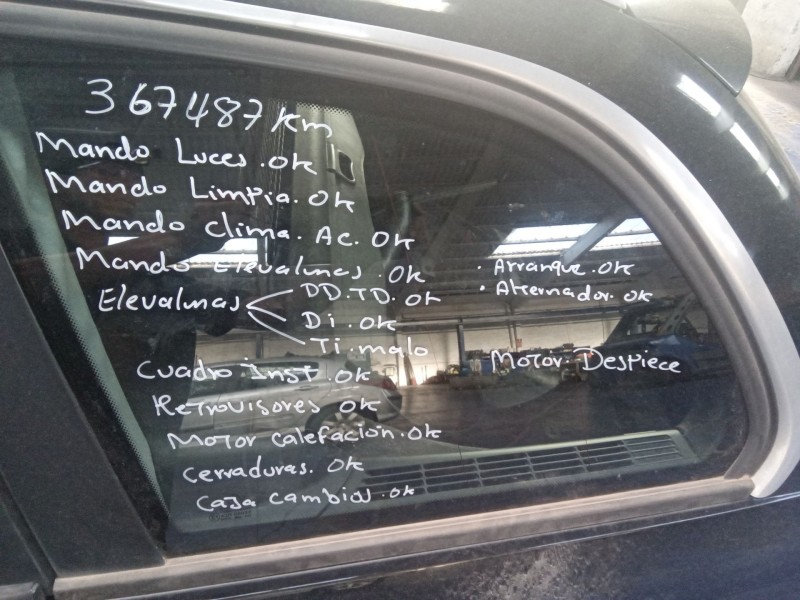 367487 Km
Mando Luces. OK
Mando Limpia. OK
Mando clima. Ac. OK
Mando Elevalunas. OK
Elevalunas DD. TD. OK
Di. OK
Ti. malo
Cuadro Inst. OK
Retrovisores OK
Motor calefación. OK
Cerraduras. OK
Caja cambios. OK
. Arranque. OK
. Alternador. OK
Motor Despiece